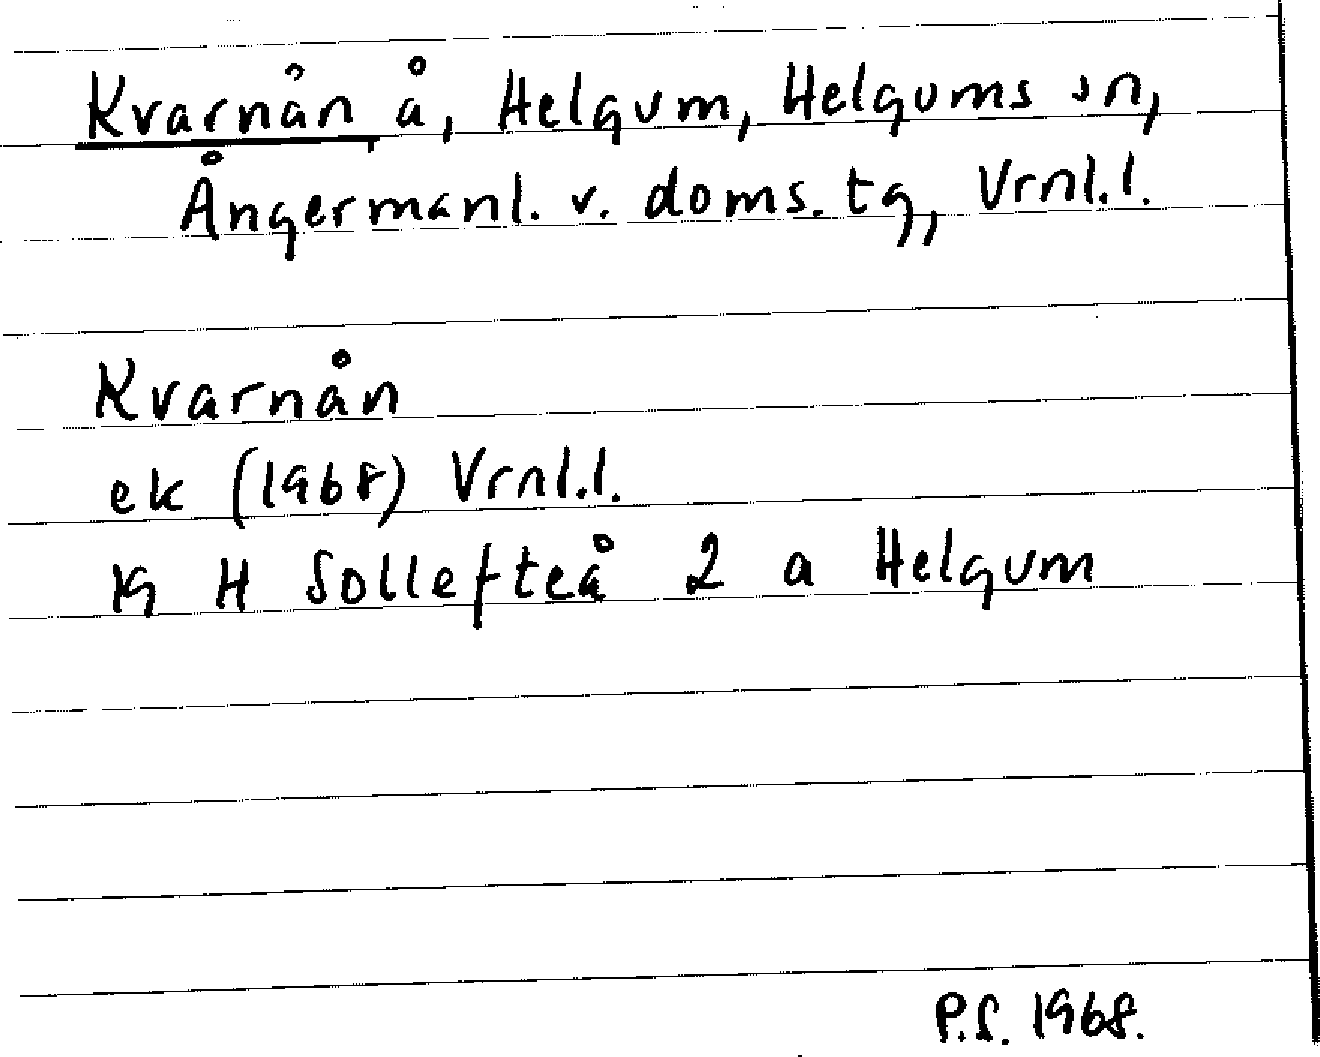 Kvarnån, å, Helgum, Helgums sn,
Ångermanl. v. doms. tg, Vrnl.l.
Kvarnån
ek (1968) Vrnl.l.
19 H Sollefteå 2 a Helgum
P.S. 1968.